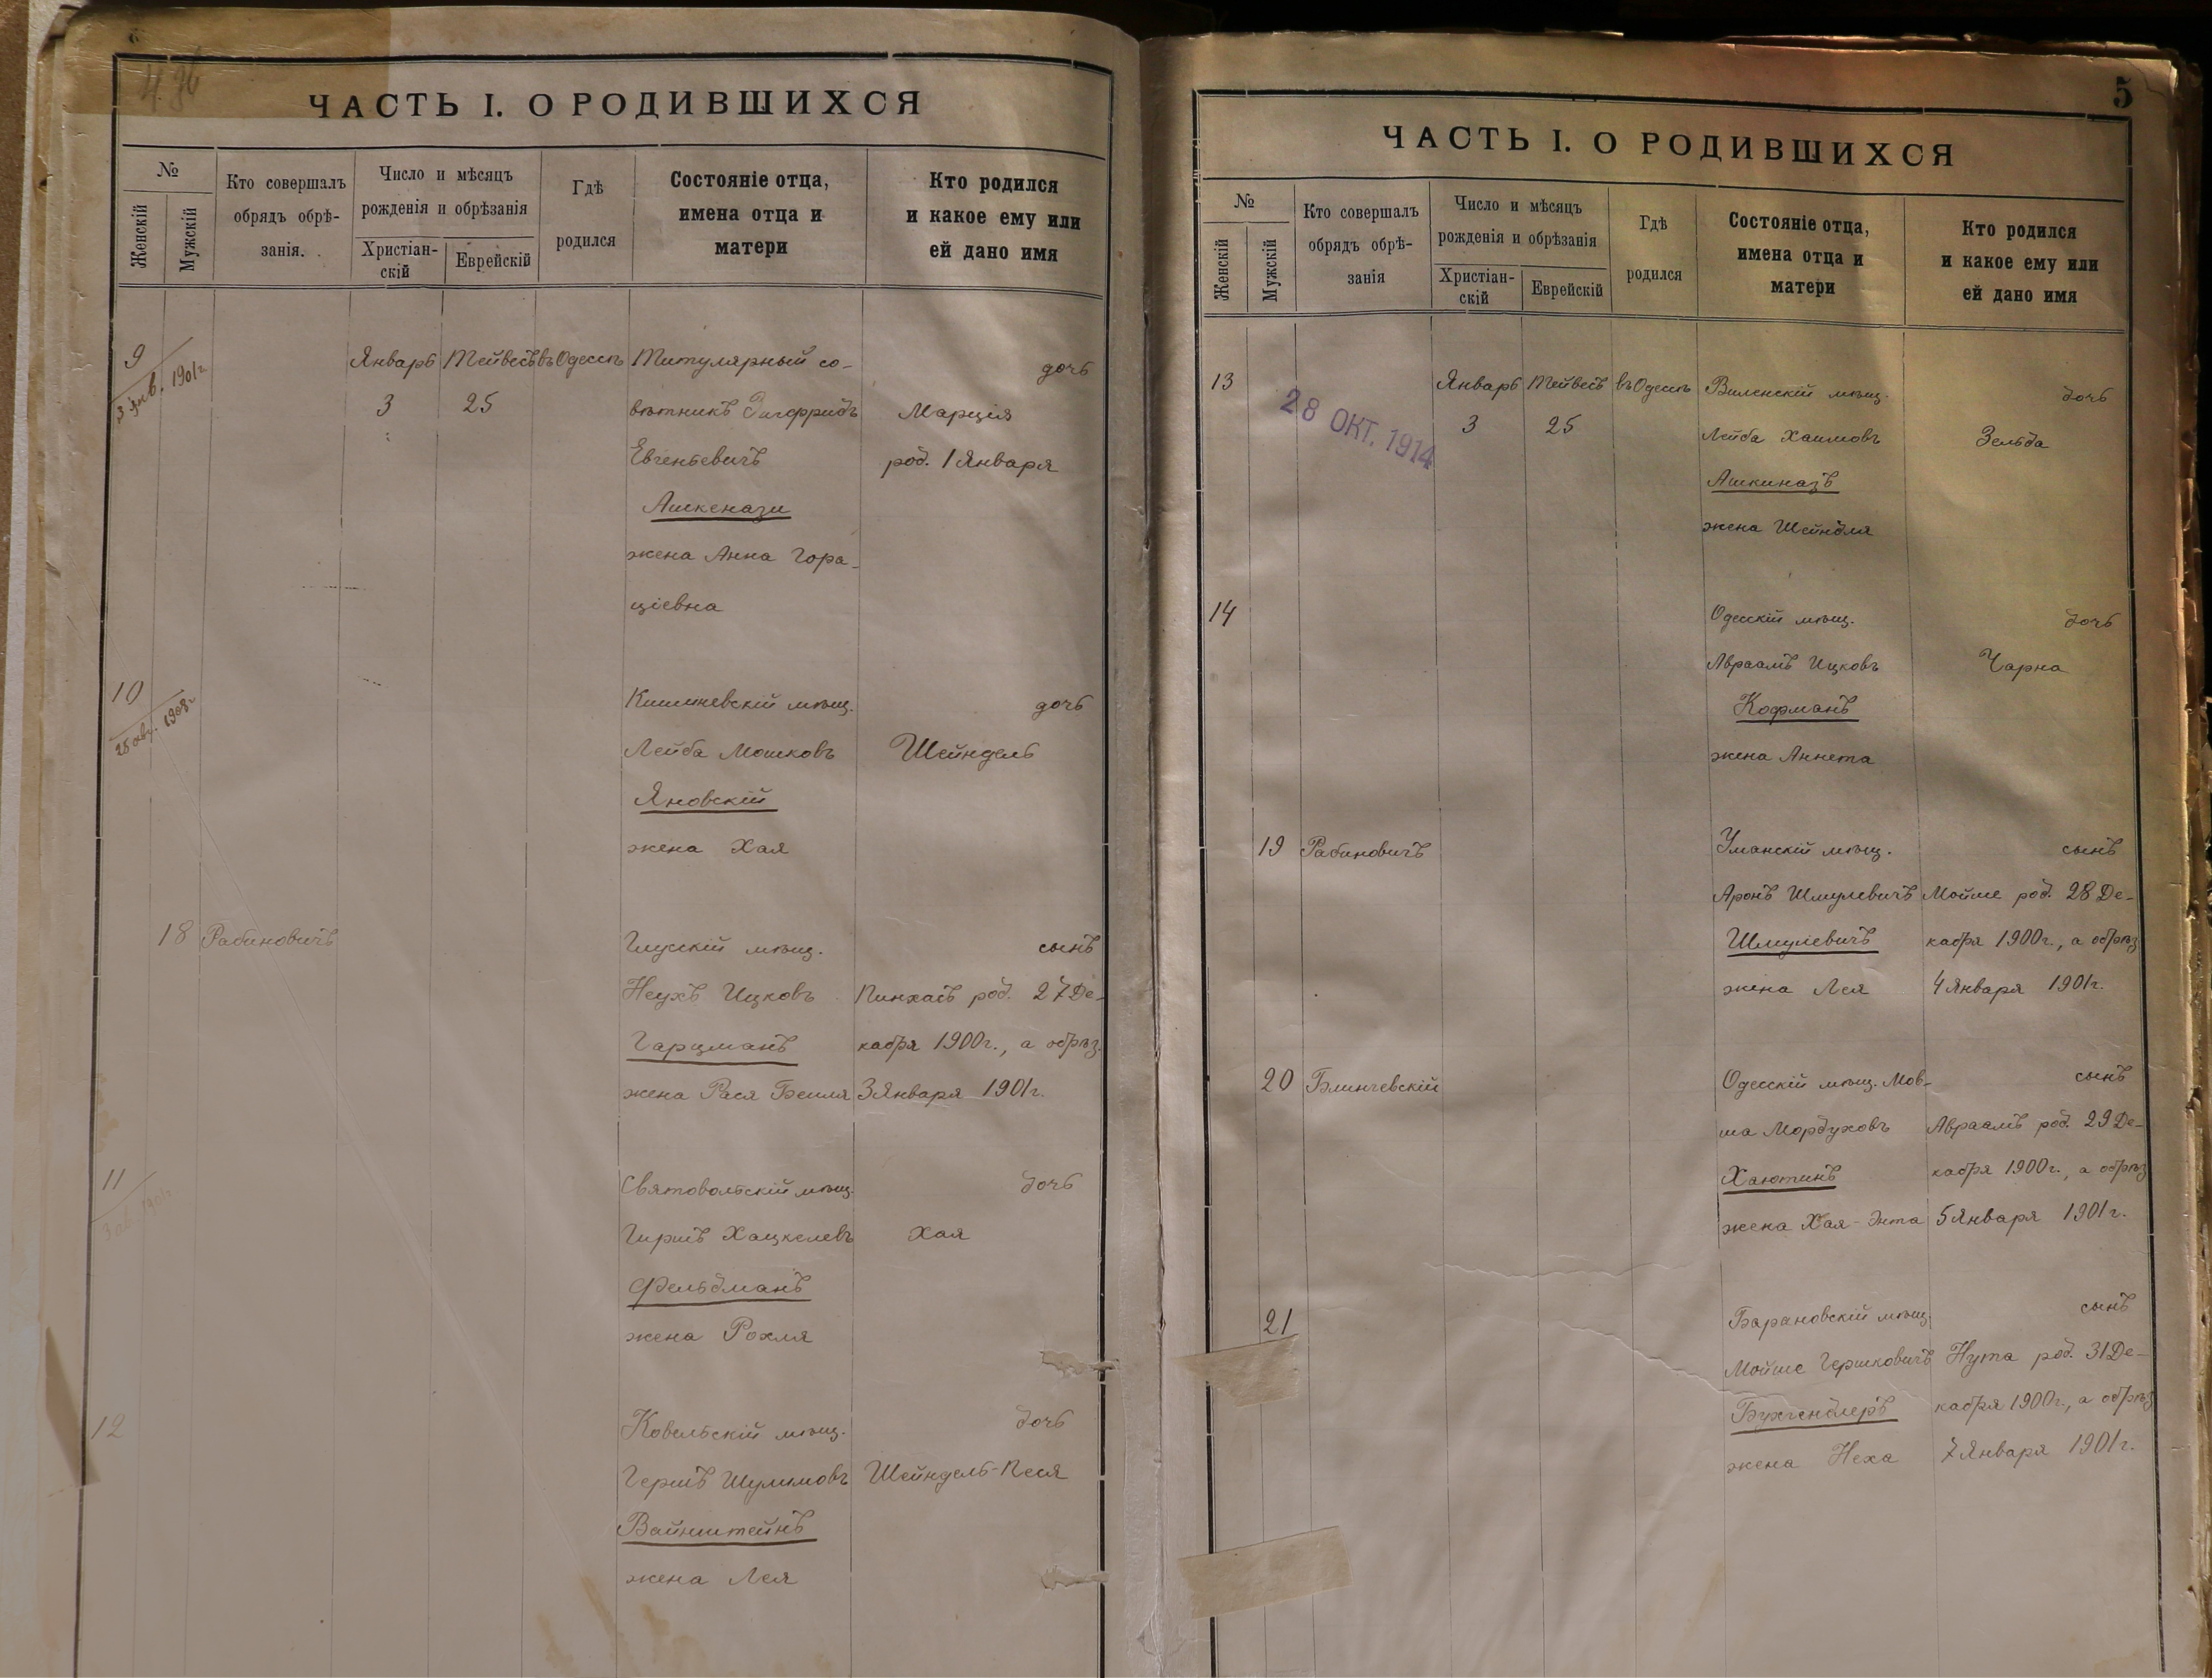 ЧАСТЬ I. О РОДИВШИХСЯ
№
Женскій
Мужскій
Кто совершалъ
обрядъ обрѣ-
занія.
Число и мѣсяцъ
рожденія и обрѣзанія
Христіан-
скій
Еврейскій
Гдѣ
родился
Состояніе отца,
имена отца и
матери
Кто родился
и какое ему или
ей дано имя
9
3 янв. 1901г.
Январь Тейвесъ въ Одессѣ Титулярный со- дочь
3 25 вѣтникъ Зигфридъ Марція
Евгеньевичъ род. 1 Января
Ашкенази
жена Анна Гора-
ціевна
10 Кишиневскій мѣщ. дочь
1908г.
Лейба Мошковъ Шейндель
Яновскій
жена Хая
18 Рабиновичъ Глусскій мѣщ. сынъ
Неухъ Ицковъ Пинхасъ род. 27 Де-
Гарцманъ кабря 1900г., а обрѣз.
жена Рася Бейля 3 Января 1901г.
11 мѣщ. дочь
Гиршъ Хацкелевъ Хая
Фельдманъ
жена Рохля
12 Ковельскій мѣщ. дочь
Гершъ Шулимовъ Шейндель-Песя
Вайнштейнъ
жена Лея
5
ЧАСТЬ I. О РОДИВШИХСЯ
№
Женскій
Мужскій
Кто совершалъ
обрядъ обрѣ-
занія
Число и мѣсяцъ
рожденія и обрѣзанія
Христіан-
скій
Еврейскій
Гдѣ
родился
Состояніе отца,
имена отца и
матери
Кто родился
и какое ему или
ей дано имя
13 Январь Тейвесъ въ Одессѣ Виленскій мѣщ. дочь
28 ОКТ. 1914
3 25 Лейба Хаимовъ Зельда
Ашкиназъ
жена Шейндля
14 Одесскій мѣщ. дочь
Авраамъ Ицковъ Чарна
Кофманъ
жена Аннета
19 Рабиновичъ Уманскій мѣщ. сынъ
Аронъ Шмулевичъ Мойше род. 28 Де-
Шмулевичъ кабря 1900г., а обрѣз
жена Лея 4 Января 1901г.
20 Блинчевскій Одесскій мѣщ. Мов- сынъ
ша Мордуховъ Авраамъ род. 29 Де-
Хаютинъ кабря 1900г., а обрѣз
жена Хая-Энта 5 Января 1901г.
21 Барановскій мѣщ. сынъ
Мойше Гершковичъ Нута род. 31 Де-
Бухгендлеръ кабря 1900г., а обрѣз
жена Неха 7 Января 1901г.